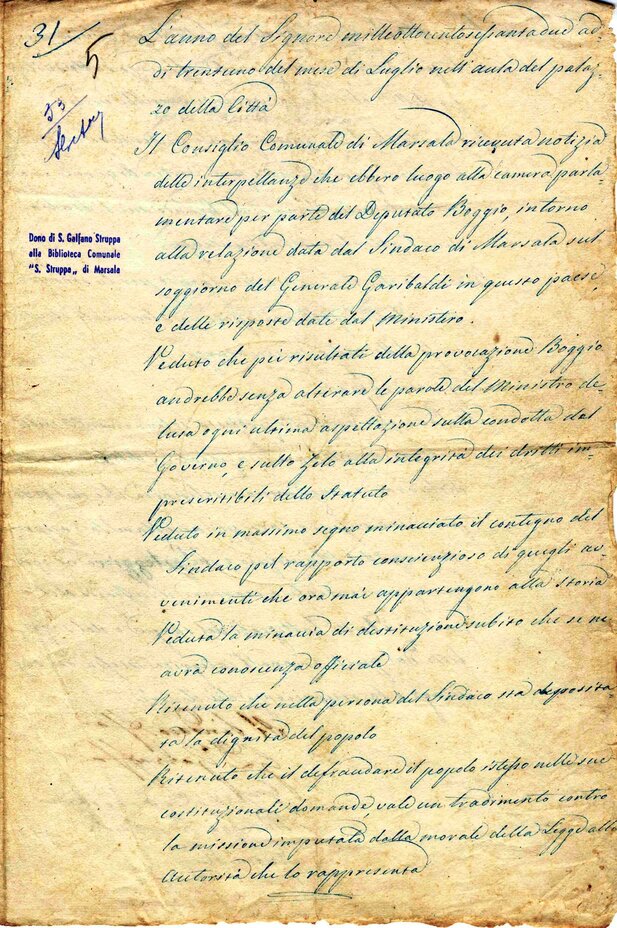 31
5
53
L'anno del Signore milleottocentosessantadue ad-
di trentuno del mese di Luglio nell'aula del palaz-
zo della Città
Il Consiglio Comunale di Marsala ricevuta notizia
delle interpellanze che ebbero luogo alla camera parla-
mentare per parte del Deputato Boggio, intorno
alla relazione data dal Sindaco di Marsala sul
soggiorno del Generale Garibaldi in questo paese,
e delle risposte date dal Ministero.
Veduto che pei risultati della provocazione Boggio
andrebbe senza alterare le parole del Ministro de-
lusa ogni ultima aspettazione sulla condotta del
Governo, e sullo zelo alla integrità dei dritti im-
prescritibili dello Statuto
Veduto in massimo segno minacciato il contegno del
Sindaco pel rapporto conscienzioso di quegli av-
venimenti che ora mai appartengono alla storia
Veduta la minaccia di destituzione subito che se ne
avrà conoscenza officiale
Ritenuto che nella persona del Sindaco sta deposita-
ta la dignità del popolo
Ritenuto che il defraudare il popolo istesso nelle sue
costituzionali domande, vale un tradimento contro
la missione imputata dalla morale della Legge alle
Autorità che lo rappresenta
Dono di S. Galfano Struppa
alla Biblioteca Comunale
"S. Struppa„ di Marsala